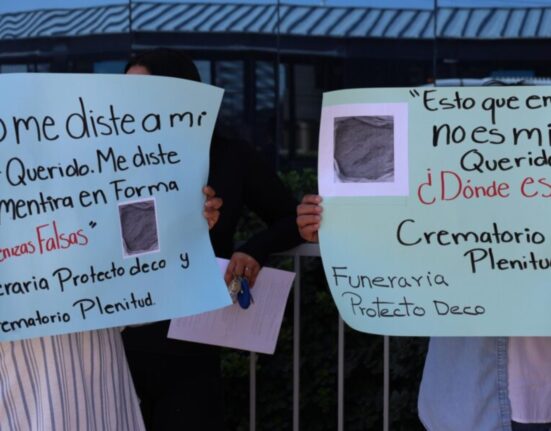 o me diste a mi
Querido. Me diste
mentira en Forma
enizas Falsas"
eraria Protecto deco y
rematorio Plenitud.
"Esto que en
no es mi
Querido
¿Dónde es
Crematorio
Plenitud
Funeraria
Protecto Deco